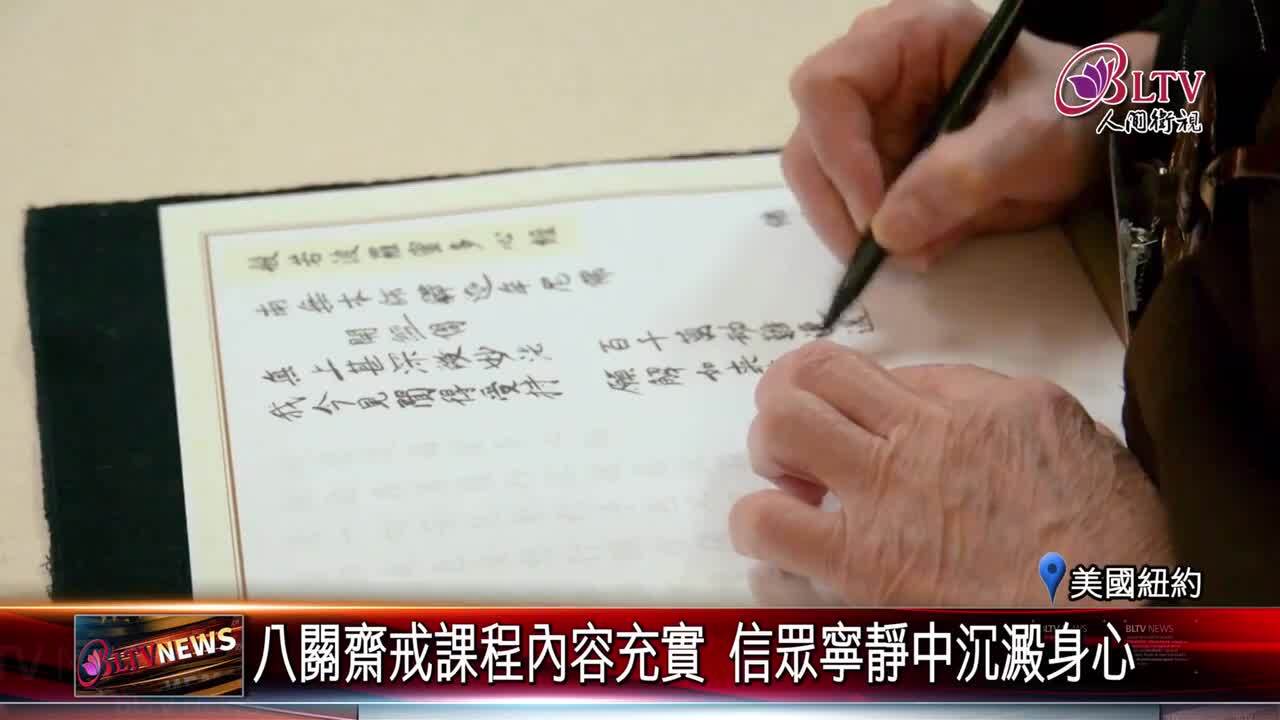 BLTV
人間衛視
般若波羅蜜多心經
南無本師釋迦牟尼佛
開經偈
無上甚深微妙法
百千萬劫難遭
我今見聞得受持
願解如來
美國紐約
BLTV NEWS
八關齋戒課程內容充實 信眾寧靜中沉澱身心
BLTV NEWS
BLTV NEWS